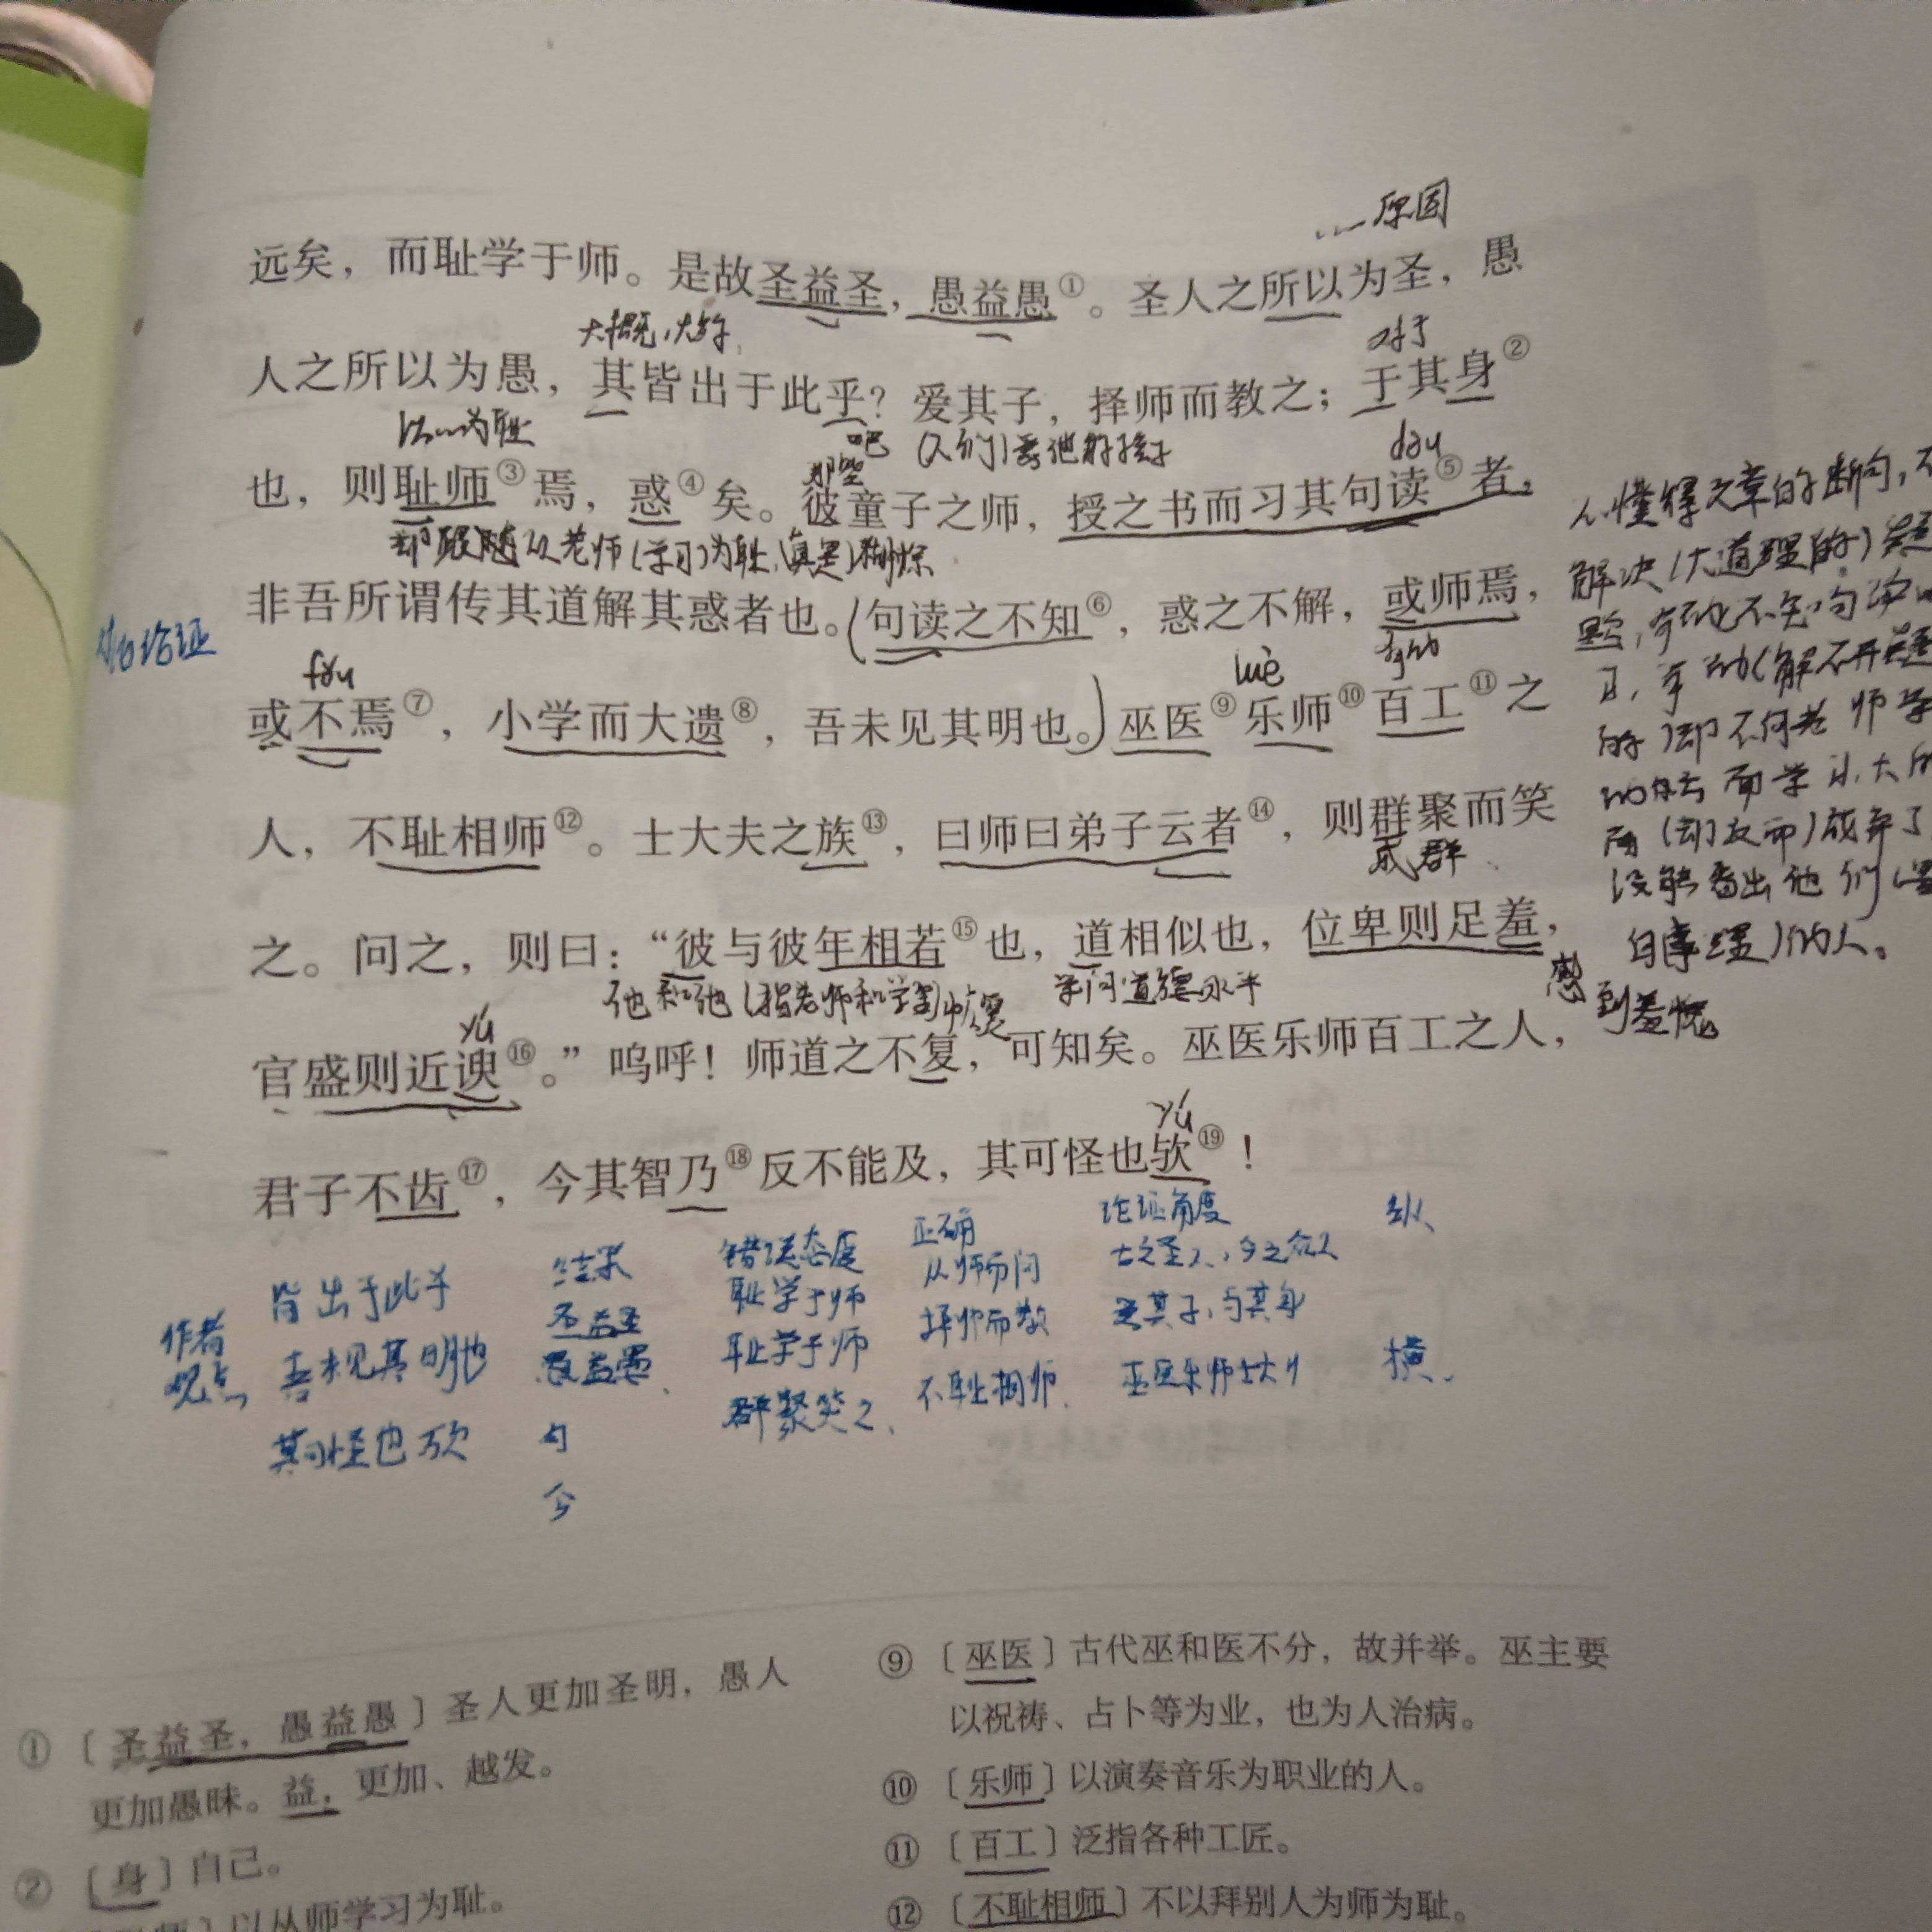 ……原因
远矣，而耻学于师。是故圣益圣，愚益愚①。圣人之所以为圣，愚
大概，大约
对于
人之所以为愚，其皆出于此乎？爱其子，择师而教之；于其身②
以……为耻
吧
(人们)爱他的孩子
dòu
也，则耻师③焉，惑④矣。彼童子之师，授之书而习其句读⑤者，
那些
却跟随从老师(学习)为耻，(真是)糊涂
非吾所谓传其道解其惑者也。(句读之不知⑥，惑之不解，或师焉，
fǒu
有的
luè
或不焉⑦，小学而大遗⑧，吾未见其明也。)巫医⑨乐师⑩百工⑪之
人，不耻相师⑫。士大夫之族⑬，曰师曰弟子云者⑭，则群聚而笑
成群
之。问之，则曰：“彼与彼年相若⑮也，道相似也，位卑则足羞，
他和他(指老师和学生)
恢复
学问道德水平
感到羞愧
yú
官盛则近谀⑯。”呜呼！师道之不复，可知矣。巫医乐师百工之人，
yú
君子不齿⑰，今其智乃⑱反不能及，其可怪也欤⑲！
懂得文章的断句，不
解决(大道理的)疑
题，有的不知句读
的)却不向老师学
没能看出他们
白事理)的人。
作者观点
皆出于此乎
吾未见其明也
其可怪也欤
结果
圣益圣
愚益愚、
错误态度
耻学于师
耻学于师
群聚笑之、
正确
从师而问
择师而教
不耻相师
论证角度
古之圣人、今之众人
爱其子、与其身
巫医乐师士大
纵、
横、
①〔圣益圣，愚益愚〕圣人更加圣明，愚人
更加愚昧。益，更加、越发。
②〔身〕自己。
〕以从师学习为耻。
⑨〔巫医〕古代巫和医不分，故并举。巫主要
以祝祷、占卜等为业，也为人治病。
⑩〔乐师〕以演奏音乐为职业的人。
⑪〔百工〕泛指各种工匠。
⑫〔不耻相师〕不以拜别人为师为耻。